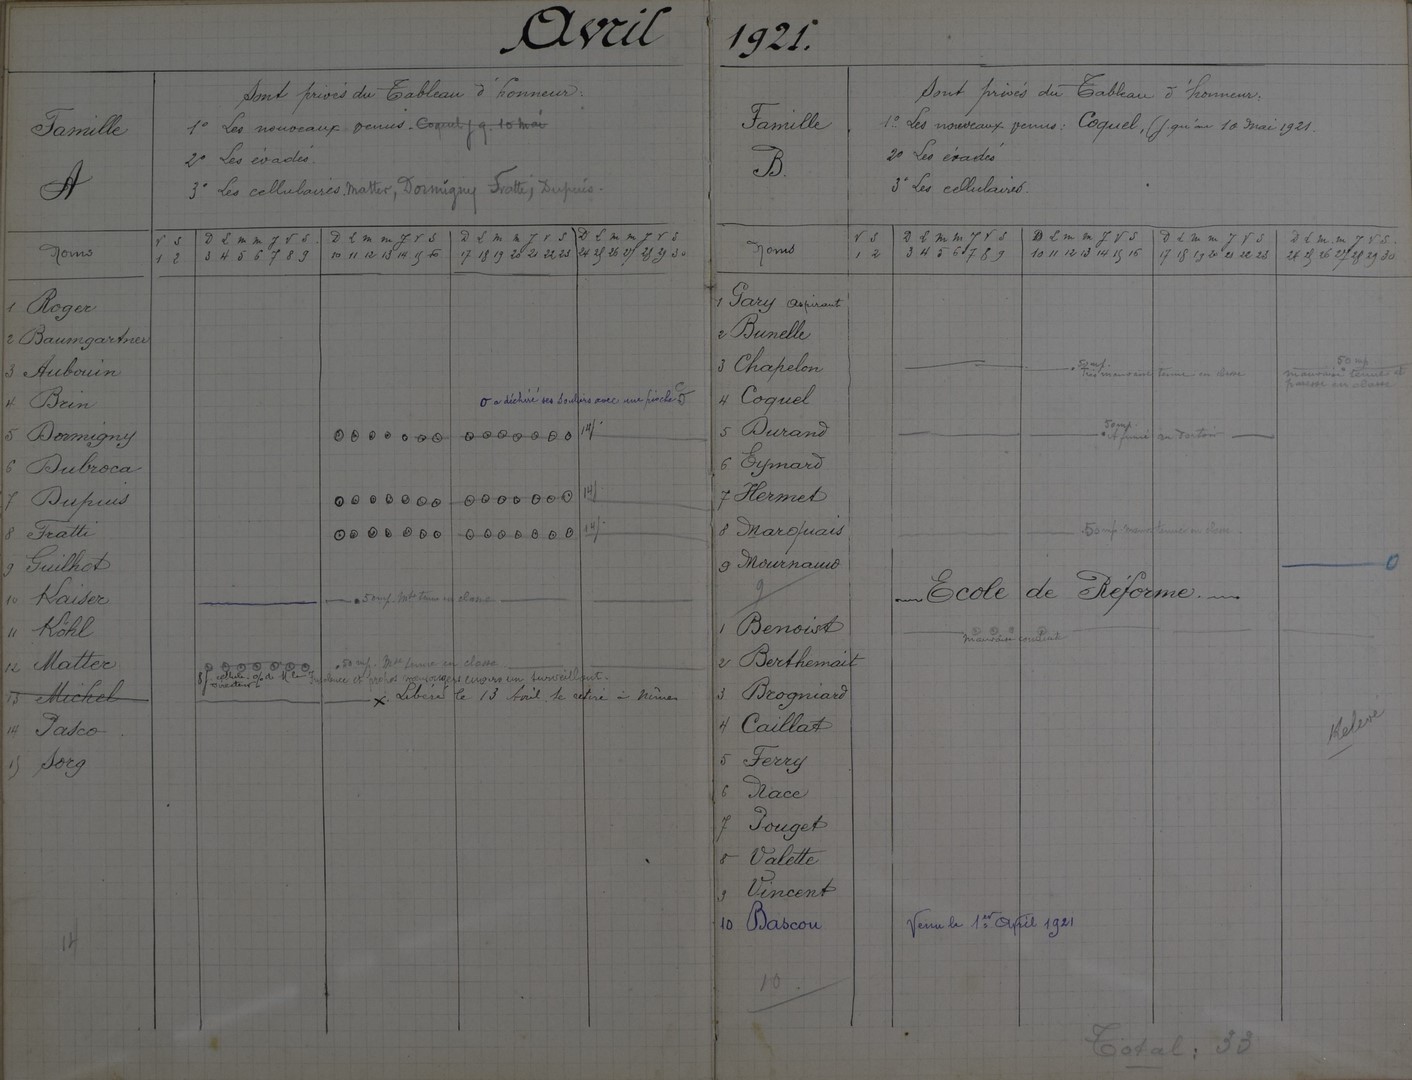 Avril 1921.
Sont privés du Tableau d'honneur:
Famille A
1º Les nouveaux venus. Coquel j. q. 10 Mai
2º Les évadés.
3º Les cellulaires. Matter, Dormigny Fratti, Dupuis.
Noms
V S D L m m J V S D L m m J V S D L m m J V S D L m m J V S
1 2 3 4 5 6 7 8 9 10 11 12 13 14 15 16 17 18 19 20 21 22 23 24 25 26 27 28 29 30
1 Roger
2 Baumgartner
3 Aubouin
4 Brin a déchiré ses souliers avec une pioche
5 Dormigny 14/
6 Dubroca
7 Dupuis 14/
8 Fratti 14/
9 Guilhot
10 Kaiser 50 mp. tenue en classe
11 Köhl
12 Matter 50 mp. tenue en classe
8/ cellule et propos mensongers envers un surveillant.
13 Michel x. Libéré le 13 Avril se retire à Nîmes
14 Pasco
15 Sorg
14
Sont privés du Tableau d'honneur.
Famille B.
1º Les nouveaux venus: Coquel, (j. qu'au 10 Mai 1921.
2º Les évadés
3º Les cellulaires.
Noms
V S D L m m J V S D L m m J V S D L m m J V S D L m m J V S
1 2 3 4 5 6 7 8 9 10 11 12 13 14 15 16 17 18 19 20 21 22 23 24 25 26 27 28 29 30
1 Gary aspirant
2 Bunelle
3 Chapelon 50 mp. Très mauvaise tenue en classe 50 mp mauvaise tenue et paresse en classe
4 Coquel
5 Durand 50 mp A fumé au dortoir
6 Eymard
7 Hermet
8 Marquais 50 mp mauv tenue en classe
9 Mournaud
9
Ecole de Réforme.
1 Benoist Mauvaise conduite
2 Berthemait
3 Brogniard
4 Caillat
Relevé
5 Ferry
6 Race
7 Pouget
8 Valette
9 Vincent
10 Bascou Venu le 1er April 1921
10.
Total: 33